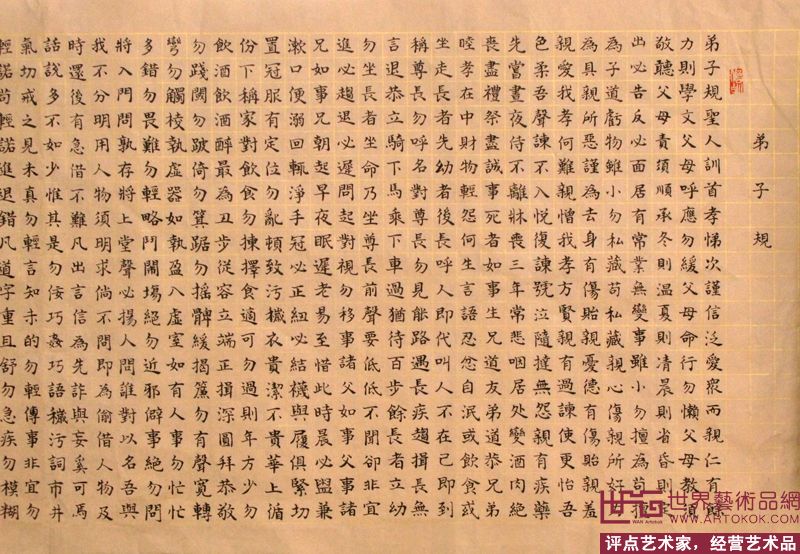 弟子規
弟子規聖人訓首孝悌次謹信泛愛衆而親仁有餘
力則學文父母呼應勿緩父母命行勿懶父母教須
敬聽父母責須順承冬則溫夏則凊晨則省昏則定
出必告反必面居有常業無變事雖小勿擅為苟擅
為子道虧物雖小勿私藏苟私藏親心傷親所好力
為具親所惡謹為去身有傷貽親憂德有傷貽親羞
親愛我孝何難親憎我孝方賢親有過諫使更怡吾
色柔吾聲諫不入悅復諫號泣隨撻無怨親有疾藥
先嘗晝夜侍不離牀喪三年常悲咽居處變酒肉絕
喪盡禮祭盡誠事死者如事生兄道友弟道恭兄弟
睦孝在中財物輕怨何生言語忍忿自泯或飲食或
坐走長者先幼者後長呼人即代叫人不在己即到
稱尊長勿呼名對尊長勿見能路遇長疾趨揖長無
言退恭立騎下馬乘下車過猶待百步餘長者立幼
勿坐長者坐命乃坐尊長前聲要低低不聞卻非宜
進必趨退必遲問起對視勿移事諸父如事父事諸
兄如事兄朝起早夜眠遲老易至惜此時晨必盥兼
漱口便溺回輒淨手冠必正紐必結襪與履俱緊切
置冠服有定位勿亂頓致污穢衣貴潔不貴華上循
份下稱家對飲食勿揀擇食適可勿過則年方少勿
飲酒飲酒醉最為丑步從容立端正揖深圓拜恭敬
勿踐閾勿跛倚勿箕踞勿搖髀緩揭簾勿有聲寬轉
彎勿觸棱執虛器如執盈入虛室如有人事勿忙忙
多錯勿畏難勿輕略鬥鬧場絕勿近邪僻事絕勿問
將入門問孰存將上堂聲必揚人問誰對以名吾與
我不分明用人物須明求倘不問即為偷借人物及
時還後有急借不難凡出言信為先詐與妄奚可焉
話說多不如少惟其是勿佞巧姦巧語穢污詞市井
氣切戒之見未真勿輕言知未的勿輕傳事非宜勿
輕諾苟輕諾進退錯凡道字重且舒勿急疾勿模糊
世界藝術品網
WWW.ARTOKOK.COM
评点艺术家，经营艺术品